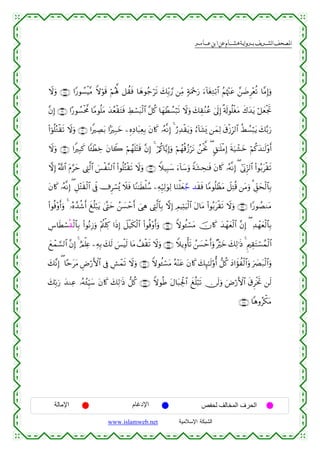 المصحف الشريف برواية هشام عن ابن عامر
وَإِمَّا تُعْرِضَنَّ عَنْهُمُ ٱبْتِغَآءَ رَحْمَةٍ مِّن رَّبِّكَ تَرْجُوهَا فَقُل لَّهُمْ قَوْلًا مَّيْسُورًا ﴿٢٨﴾ وَلَا
تَجْعَلْ يَدَكَ مَغْلُولَةً إِلَىٰ عُنُقِكَ وَلَا تَبْسُطْهَا كُلَّ ٱلْبَسْطِ فَتَقْعُدَ مَلُومًا مَّحْسُورًا ﴿٢٩﴾ إِنَّ
رَبَّكَ يَبْسُطُ ٱلرِّزْقَ لِمَن يَشَآءُ وَيَقْدِرُ ۚ إِنَّهُۥ كَانَ بِعِبَادِهِۦ خَبِيرًۢا بَصِيرًا ﴿٣٠﴾ وَلَا تَقْتُلُوٓا۟
أَوْلَٰدَكُمْ خَشْيَةَ إِمْلَٰقٍ ۖ نَّحْنُ نَرْزُقُهُمْ وَإِيَّاكُمْ ۚ إِنَّ قَتْلَهُمْ كَانَ خِطْـًٔا كَبِيرًا ﴿٣١﴾ وَلَا
تَقْرَبُوا۟ ٱلزِّنَىٰٓ ۖ إِنَّهُۥ كَانَ فَٰحِشَةً وَسَآءَ سَبِيلًا ﴿٣٢﴾ وَلَا تَقْتُلُوا۟ ٱلنَّفْسَ ٱلَّتِى حَرَّمَ ٱللَّهُ إِلَّا
بِٱلْحَقِّ ۗ وَمَن قُتِلَ مَظْلُومًا فَقَد جَّعَلْنَا لِوَلِيِّهِۦ سُلْطَٰنًا فَلَا يُسْرِف فِّى ٱلْقَتْلِ ۖ إِنَّهُۥ كَانَ
مَنصُورًا ﴿٣٣﴾ وَلَا تَقْرَبُوا۟ مَالَ ٱلْيَتِيمِ إِلَّا بِٱلَّتِى هِىَ أَحْسَنُ حَتَّىٰ يَبْلُغَ أَشُدَّهُۥ ۚ وَأَوْفُوا۟
بِٱلْعَهْدِ ۖ إِنَّ ٱلْعَهْدَ كَانَ مَسْـُٔولًا ﴿٣٤﴾ وَأَوْفُوا۟ ٱلْكَيْلَ إِذَا كِلْتُمْ وَزِنُوا۟ بِٱلْقُسْطَاسِ
ٱلْمُسْتَقِيمِ ۚ ذَٰلِكَ خَيْرٌ وَأَحْسَنُ تَأْوِيلًا ﴿٣٥﴾ وَلَا تَقْفُ مَا لَيْسَ لَكَ بِهِۦ عِلْمٌ ۚ إِنَّ ٱلسَّمْعَ
وَٱلْبَصَرَ وَٱلْفُؤَادَ كُلُّ أُو۟لَٰٓئِكَ كَانَ عَنْهُ مَسْـُٔولًا ﴿٣٦﴾ وَلَا تَمْشِ فِى ٱلْأَرْضِ مَرَحًا ۖ إِنَّكَ
لَن تَخْرِقَ ٱلْأَرْضَ وَلَن تَبْلُغَ ٱلْجِبَالَ طُولًا ﴿٣٧﴾ كُلُّ ذَٰلِكَ كَانَ سَيِّئُهُۥ عِندَ رَبِّكَ
مَكْرُوهًا ﴿٣٨﴾
الحرف المخالف لحفص الإدغام الإمالة
الشبكة الإسلامية www.islamweb.net